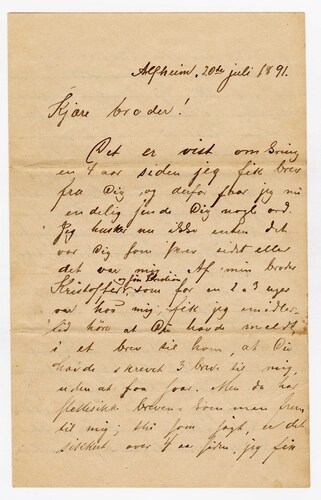 Alfheim, 20de juli 1891.
Kjære broder!
Det er vist om kring
en 4 aar siden jeg fik brev
fra Dig, og derfor faar jeg nu
endelig sende Dig nogle ord.
Jeg husker nu ikke enten det
var Dig som skrev sidst eller
det var mig. Af min broder
Kristoffer, som for en 2 a 3 uger
var hos mig, fik jeg imidler-
tid höre at Du havde meldt
i et brev til ham, at Du
havde skrevet 3 brev til mig,
uden at faa svar. Men da har
slettesikke brevene kommen frem
til mig; thi som sagt, er det
sikkert over 4 aar siden, jeg fik